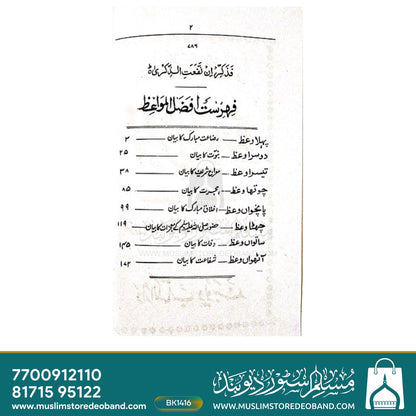 ۲
۷۸۶
فذکر ان نفعت الذکریٰ
فہرست افضل المواعظ
پہلا وعظ — رضاعت مبارک کا بیان ۳
دوسرا وعظ — نبوت کا بیان ۲۵
تیسرا وعظ — معراج شریف کا بیان ۳۸
چوتھا وعظ — ہجرت کا بیان ۸۵
پانچواں وعظ — اخلاق مبارک کا بیان ۹۹
چھٹا وعظ — حضور صلی اللہ علیہ وسلم کے معجزات کا بیان ۱۱۹
ساتواں وعظ — وفات کا بیان ۱۴۵
آٹھواں وعظ — شفاعت کا بیان ۱۷۲
7700912110
81715 95122
www.muslimstoredeoband.com
BK1416
مسلم سٹور دیوبند
WWW.MUSLIMSTOREDEOBAND.COM